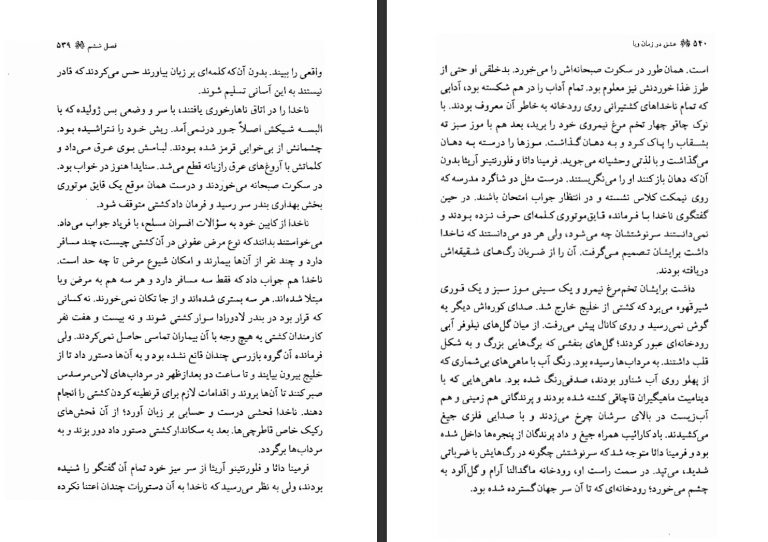 فصل ششم ۵۳۹
واقعی را ببیند. بدون آن‌که کلمه‌ای بر زبان بیاورند حس می‌کردند که قادر
نیستند به این آسانی تسلیم شوند.
ناخدا را در اتاق ناهارخوری یافتند، با سر و وضعی بس ژولیده که با
البسه شیکش اصلاً جور درنمی‌آمد. ریش خود را نتراشیده بود.
چشمانش از بی‌خوابی قرمز شده بودند. لباسش بوی عرق می‌داد و
کلماتش با آروغ‌های عرق رازیانه قطع می‌شد. سنایدا هنوز در خواب بود.
در سکوت صبحانه می‌خوردند و درست همان موقع یک قایق موتوری
بخش بهداری بندر سر رسید و فرمان داد کشتی متوقف شود.
ناخدا از کابین خود به سؤالات افسران مسلح، با فریاد جواب می‌داد.
می‌خواستند بدانند که نوع مرض عفونی در آن کشتی چیست، چند مسافر
دارد و چند نفر از آن‌ها بیمارند و امکان شیوع مرض تا چه حد است.
ناخدا هم جواب داد که فقط سه مسافر دارد و هر سه هم به مرض وبا
مبتلا شده‌اند. هر سه بستری شده‌اند و از جا تکان نمی‌خورند. نه کسانی
که قرار بود در بندر لادورادا سوار کشتی شوند و نه بیست و هفت نفر
کارمندان کشتی به هیچ وجه با آن بیماران تماسی حاصل نمی‌کردند. ولی
فرمانده آن گروه بازرسی چندان قانع نشده بود و به آن‌ها دستور داد تا از
خلیج بیرون بیایند و تا ساعت دو بعدازظهر در مرداب‌های لاس‌مرسدس
صبر کنند تا آن‌ها بروند و اقدامات لازم برای قرنطینه کردن کشتی را انجام
دهند. ناخدا فحشی درست و حسابی بر زبان آورد؛ از آن فحش‌های
رکیک خاص قاطرچی‌ها. بعد به سکاندار کشتی دستور داد دور بزند و به
مرداب‌ها برگردد.
فرمینا داثا و فلورنتینو آریثا از سر میز خود تمام آن گفتگو را شنیده
بودند، ولی به نظر می‌رسید که ناخدا به آن دستورات چندان اعتنا نکرده
۵۴۰ عشق در زمان وبا
است. همان طور در سکوت صبحانه‌اش را می‌خورد. بدخلقی او حتی از
طرز غذا خوردنش نیز معلوم بود. تمام آداب را در هم شکسته بود، آدابی
که تمام ناخداهای کشتیرانی روی رودخانه به خاطر آن معروف بودند. با
نوک چاقو چهار تخم مرغ نیمروی خود را برید، بعد هم با موز سبز ته
بشقاب را پاک کرد و به دهان گذاشت. موزها را درسته به دهان
می‌گذاشت و با لذتی وحشیانه می‌جوید. فرمینا داثا و فلورنتینو آریثا بدون
آن‌که دهان باز کنند او را می‌نگریستند. درست مثل دو شاگرد مدرسه که
روی نیمکت کلاس نشسته و در انتظار جواب امتحان باشند. در حین
گفتگوی ناخدا با فرمانده قایق‌موتوری کلمه‌ای حرف نزده بودند و
نمی‌دانستند سرنوشتشان چه می‌شود، ولی هر دو می‌دانستند که ناخدا
داشت برایشان تصمیم می‌گرفت. آن را از ضربان رگ‌های شقیقه‌اش
دریافته بودند.
داشت برایشان تخم‌مرغ نیمرو و یک سینی موز سبز و یک قوری
شیرقهوه می‌برد که کشتی از خلیج خارج شد. صدای کوره‌اش دیگر به
گوش نمی‌رسید و روی کانال پیش می‌رفت. از میان گل‌های نیلوفر آبی
رودخانه‌ای عبور کردند؛ گل‌های بنفشی که برگ‌هایی بزرگ و به شکل
قلب داشتند. به مرداب‌ها رسیده بود. رنگ آب با ماهی‌های بی‌شماری که
از پهلو روی آب شناور بودند، صدفی‌رنگ شده بود. ماهی‌هایی که با
دینامیت ماهیگیران قاچاقی کشته شده بودند و پرندگانی هم زمینی و هم
آب‌زیست در بالای سرشان چرخ می‌زدند و با صدایی فلزی جیغ
می‌کشیدند. باد کارائیب همراه جیغ و داد پرندگان از پنجره‌ها داخل شده
بود و فرمینا داثا متوجه شد که سرنوشتش چگونه در رگ‌هایش با ضرباتی
شدید، می‌تپد. در سمت راست او، رودخانه ماگدالنا آرام و گل‌آلود به
چشم می‌خورد؛ رودخانه‌ای که تا آن سر جهان گسترده شده بود.